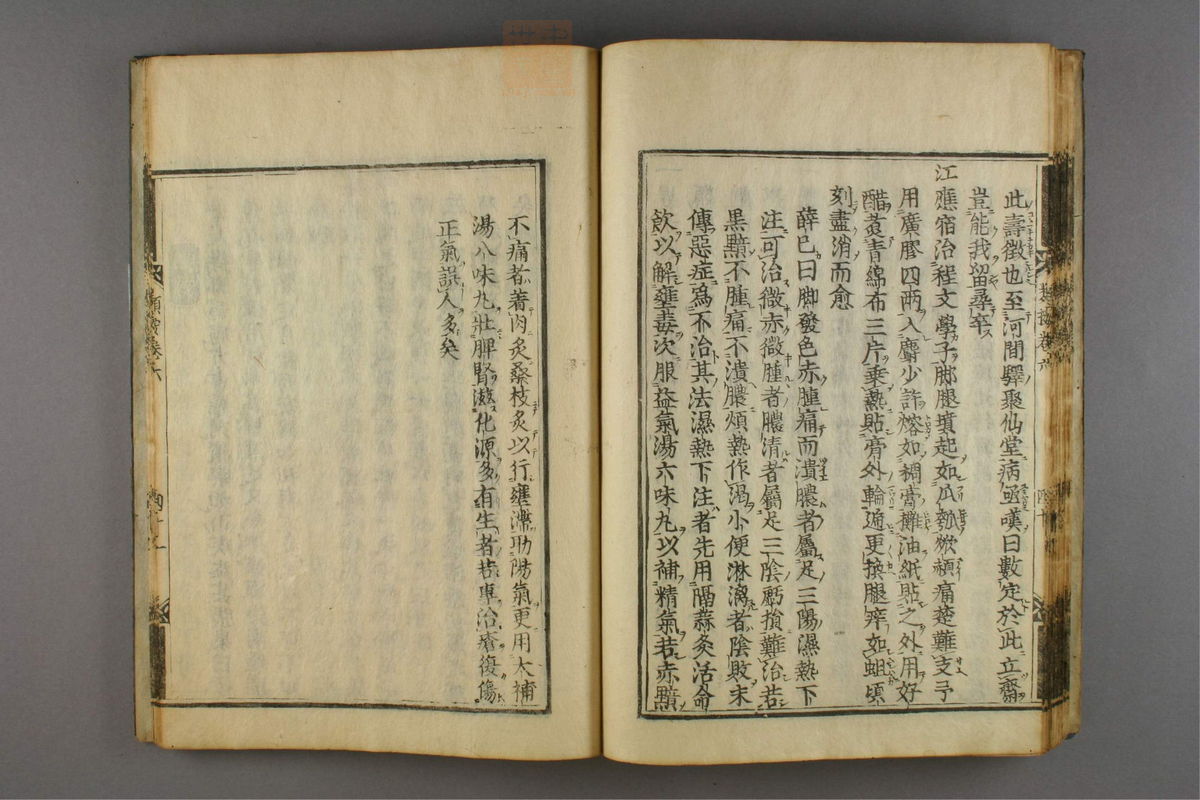 此壽徵也至河間驛聚仙堂病亟嘆曰數定於此立齋
豈能我留尋卒
江應宿治程文學子脚腿墳起如瓜瓠掀痛楚難支予
用廣膠四兩入麝少許熔如稠膏攤油紙貼之外用好
醋煮青綿布三片乗熱貼膏外輪遞更換腿痒如蛆頃
刻盡消而愈
薛已曰脚發色赤腫痛而潰膿者屬足三陽濕熱下
注可治微赤微腫者膿清者屬足三陰虧損難治若
黒黯不腫痛不潰膿煩熱作渇小便淋漓者陰敗末
傳惡症爲不治其法濕熱下注者先用隔蒜灸活命
飲以解壅毒次服益氣湯六味丸以補精氣若赤黯
不痛者著肉灸桑枝灸以行壅滯助陽氣更用大補
湯八味丸壯脾腎滋化源多有生者若專治瘡復傷
正氣誤人多矣